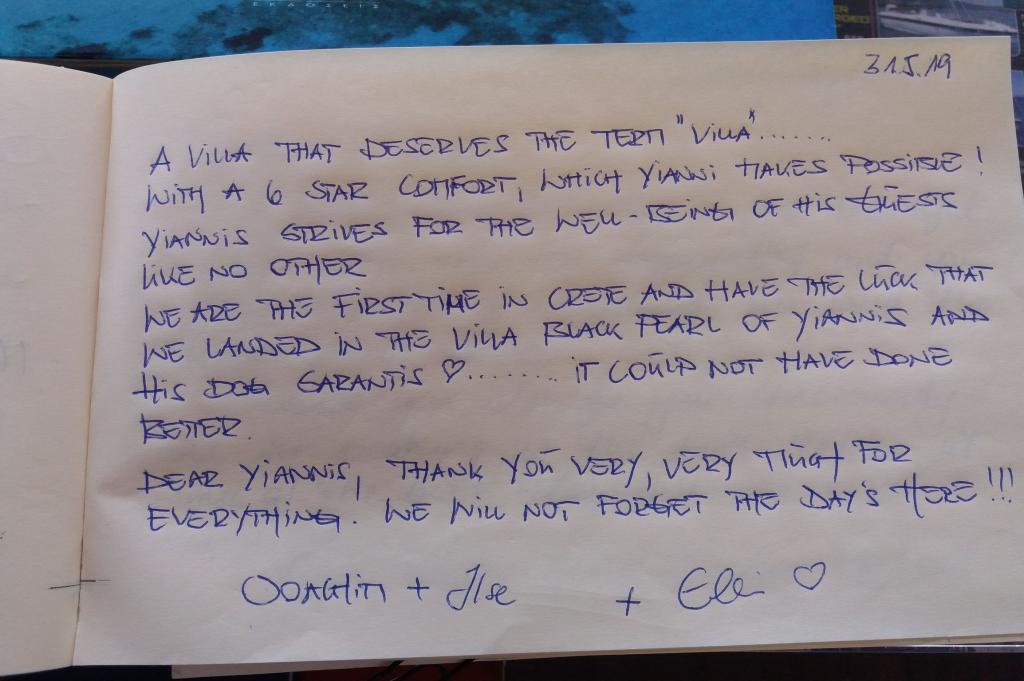 ΕΚΔΟΣΕΙΣ
31.5.19
A VILLA THAT DESERVES THE TERM "VILLA".......
WITH A 6 STAR COMFORT, WHICH YIANNI MAKES POSSIBLE!
YIANNIS STRIVES FOR THE WELL-BEING OF HIS GUESTS
LIKE NO OTHER
WE ARE THE FIRST TIME IN CRETE AND HAVE THE LUCK THAT
WE LANDED IN THE VILLA BLACK PEARL OF YIANNIS AND
HIS DOG GARANTIS ♡........ IT COULD NOT HAVE DONE
BETTER.
DEAR YIANNIS, THANK YOU VERY, VERY MUCH FOR
EVERYTHING. WE WILL NOT FORGET THE DAY'S HERE!!!
+ Ilse + ♡